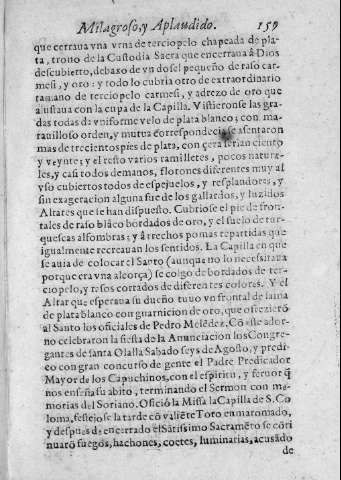 Milagroso, y Aplaudido. 159
que cerraua vna vrna de terciopelo chapeada de pla-
ta, trono de la Custodia Sacra que encerraua â Dios
descubierto, debaxo de vn dosel pequeño de raso car-
mesi, y oro: y todo lo cubria otro de extraordinario
tamano de terciopelo carmesi, y adrezo de oro que
ajustaua con la cupa de la Capilla. Vistieron se las gra-
das todas de vniforme velo de plata blanco; con ma-
rauilloso orden, y mutua correspondecia se asentaron
mas de trecientos pies de plata, con çera serian ciento
y veynte; y el resto varios ramilletes, pocos natura-
les, y casi todos de mano, florones diferentes muy al
vso cubiertos todos de espejuelos, y resplandores, y
sin exageracion alguna fue de los gallardos, y luzidos
Altares que se han dispuesto. Cubriose el pie de fron-
tales de raso blãco bordados de oro, y el suelo de tur-
quescas alfombras; y â trechos pomas repartidas que
igualmente recreauan los sentidos. La Capilla en que
se auia de colocar el Santo (aunque no lo necessitaua
porque era vna alcorça) se colgo de bordados de ter-
ciopelo, y rasos cortados de diferentes colores. Y el
Altar que esperaua su dueño tuuo vn frontal de lama
de plata blanco con guarnicion de oro, que ofrezierõ
al Santo los oficiales de Pedro Melédez. Cõ este ador-
no celebraron la fiesta de la Anunciacion los Congre-
gantes de santa Olalla Sabado seys de Agosto, y predi-
co con gran concurso de gente el Padre Predicador
Mayor de los Capuchinos, con el espiritu, y feruor q̃
nos enseña su abito, terminando el Sermon con me-
morias del Soriano. Ofició la Missa la Capilla de S. Co
loma, festejose la tarde cõ valiẽte Toro enmaromado,
y despues de encerrado el Sãtissimo Sacramẽto se cõti
nuarõ fuegos, hachones, coetes, luminarias, acusãdo
de